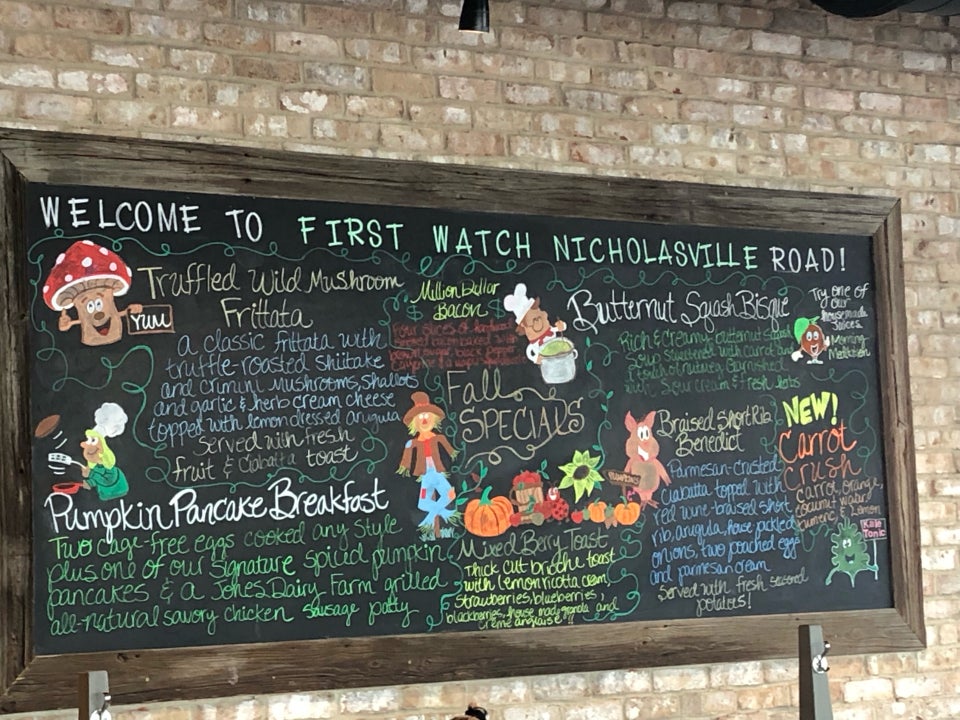 WELCOME TO FIRST WATCH NICHOLASVILLE ROAD!
Truffled Wild Mushroom
Frittata
YUM
a classic frittata with
truffle-roasted shiitake
and crimini mushrooms, shallots
and garlic & herb cream cheese
topped with lemon dressed arugula
Served with fresh
fruit & Ciabatta toast
Pumpkin Pancake Breakfast
Two cage-free eggs cooked any style
plus one of our signature spiced pumpkin
pancakes & a Jones Dairy Farm grilled
all-natural savory chicken sausage patty
Million Dollar
Bacon
Four slices of hardwood
smoked bacon baked with
brown sugar, black pepper
Fall
SPECIALS
Mixed Berry Toast
Thick cut brioche toast
with lemon ricotta cream,
strawberries, blueberries,
blackberries, house made granola and
crème anglaise
Butternut Squash Bisque
Rich & creamy butternut squash
Soup sweetened with carrot and
touch of nutmeg. Garnished
with sour cream & fresh herbs
Braised Short Rib
Benedict
Parmesan-crusted
ciabatta topped with
red wine-braised short
rib, arugula, house pickled
onions, two poached eggs
and parmesan cream
Served with fresh seasoned
potatoes!
Try one of
our
housemade
Juices.
Morning
Meditation
NEW!
Carrot
Crush
Carrot, orange,
coconut water
turmeric & Lemon
Kale
Tonic